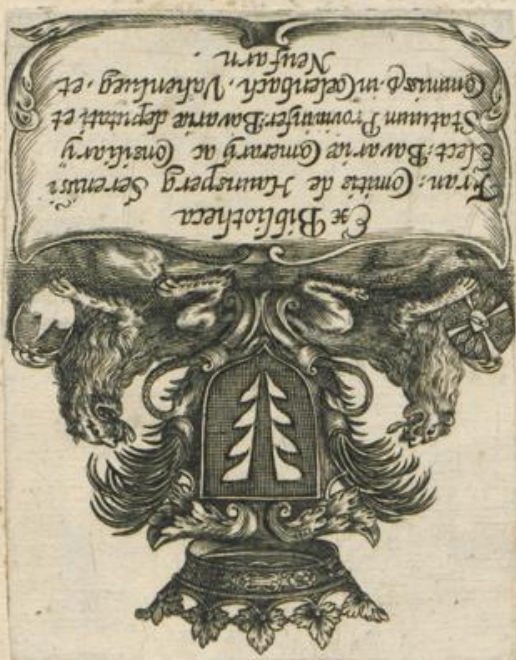 Ex Bibliotheca
Fran: Comitis de Haunsperg Sereniss
Elect: Bavariæ Camerarÿ ac Consiliarÿ
Statuum Provin: infer: Bavariæ deputati et
Commiss: in Vahenlueg, et
Neufarn.